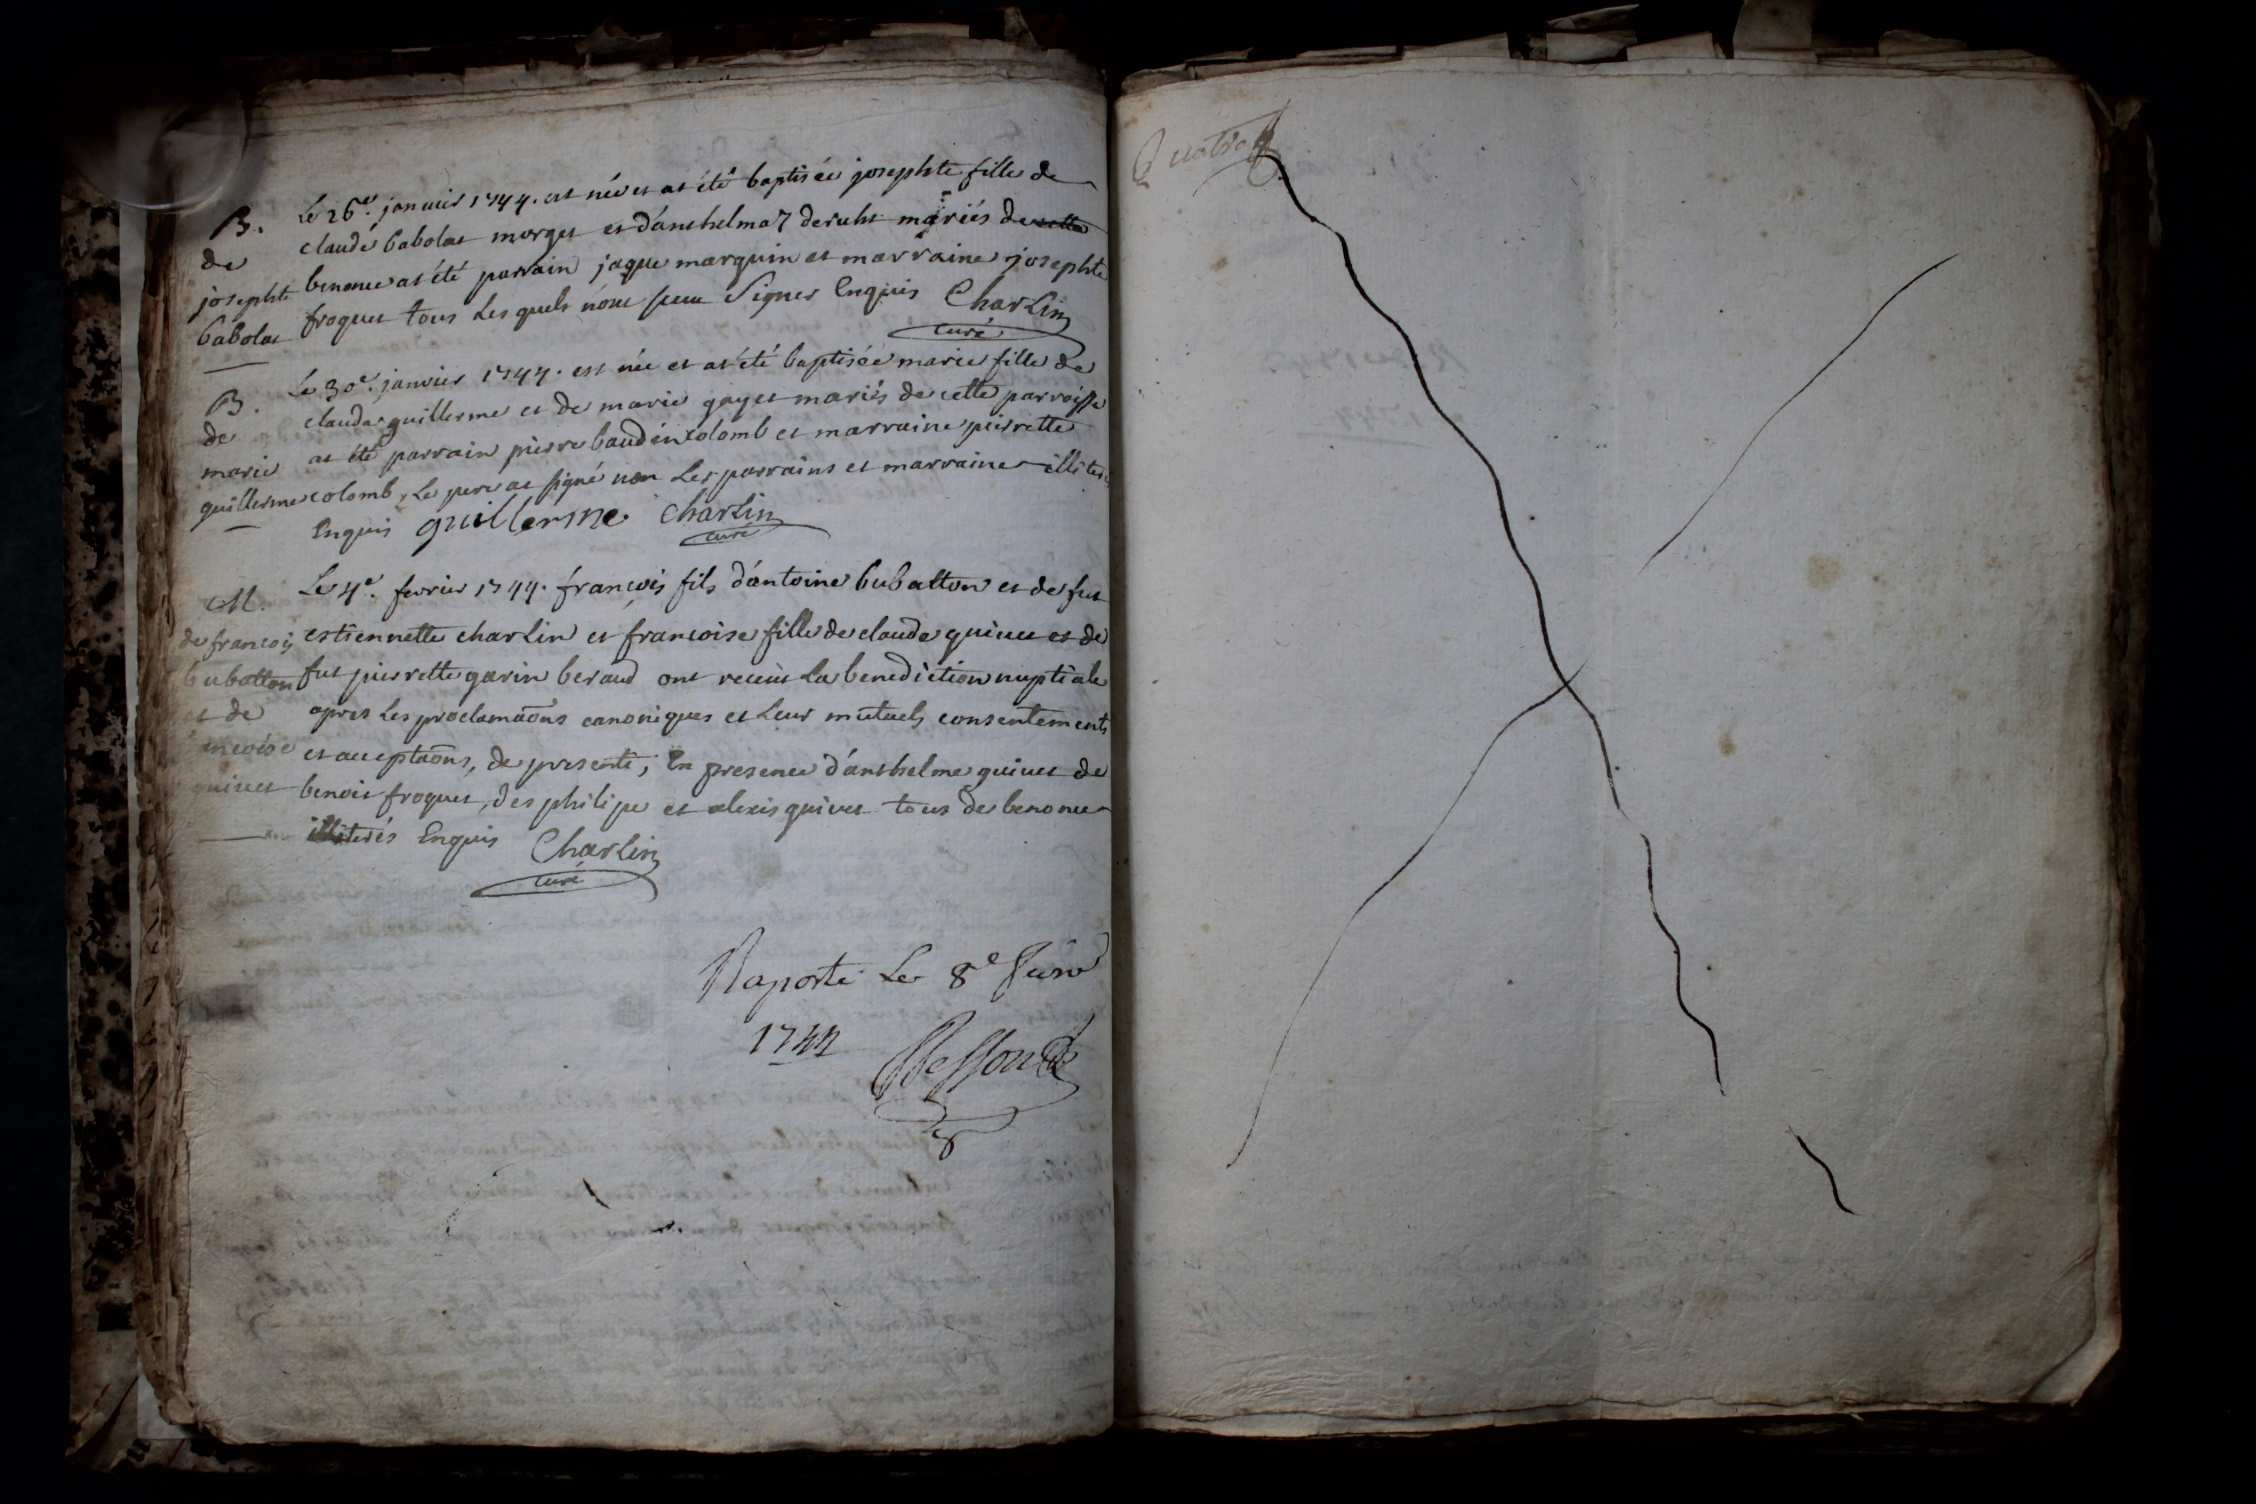 B.
de
josephte
babolat
Le 26e. janvier 1744. est née et at été baptisée josephte fille de
claude babolat morget et d'anthelma7 deruht mariés de cette
benonce at été parrain jaque marquin et marraine josephte
froquet tous Les quels n'ont sceu Signer Enquis Charlin
curé
B.
de
marie
guillerme
Le 30e. janvier 1744. est née et at été baptisée marie fille de
claude guillerme et de marie gayet mariés de cette parroisse
at été parrain pierre baudin colomb et marraine pierrette
colomb, Le pere at signé non Les parrains et marraine illiterés
Enquis guillerme Charlin
curé
M.
de francois
bubatton
et de
quivet
Le 4e. fevrier 1744. francois fils d'antoine bubatton et de fut
estiennette charlin et francoise fille de claude quivet et de
fut pierrette garin beraud ont receut La benediction nuptiale
apres Les proclamaons canoniques et Leur mutuels consentements
et acceptaons, de presents, En presence d'anthelme quivet de
benoit froquet, des philipe et alexis quivet tous de benonce
illiterés Enquis Charlin
curé
Raporté Le 8e Juin
1744